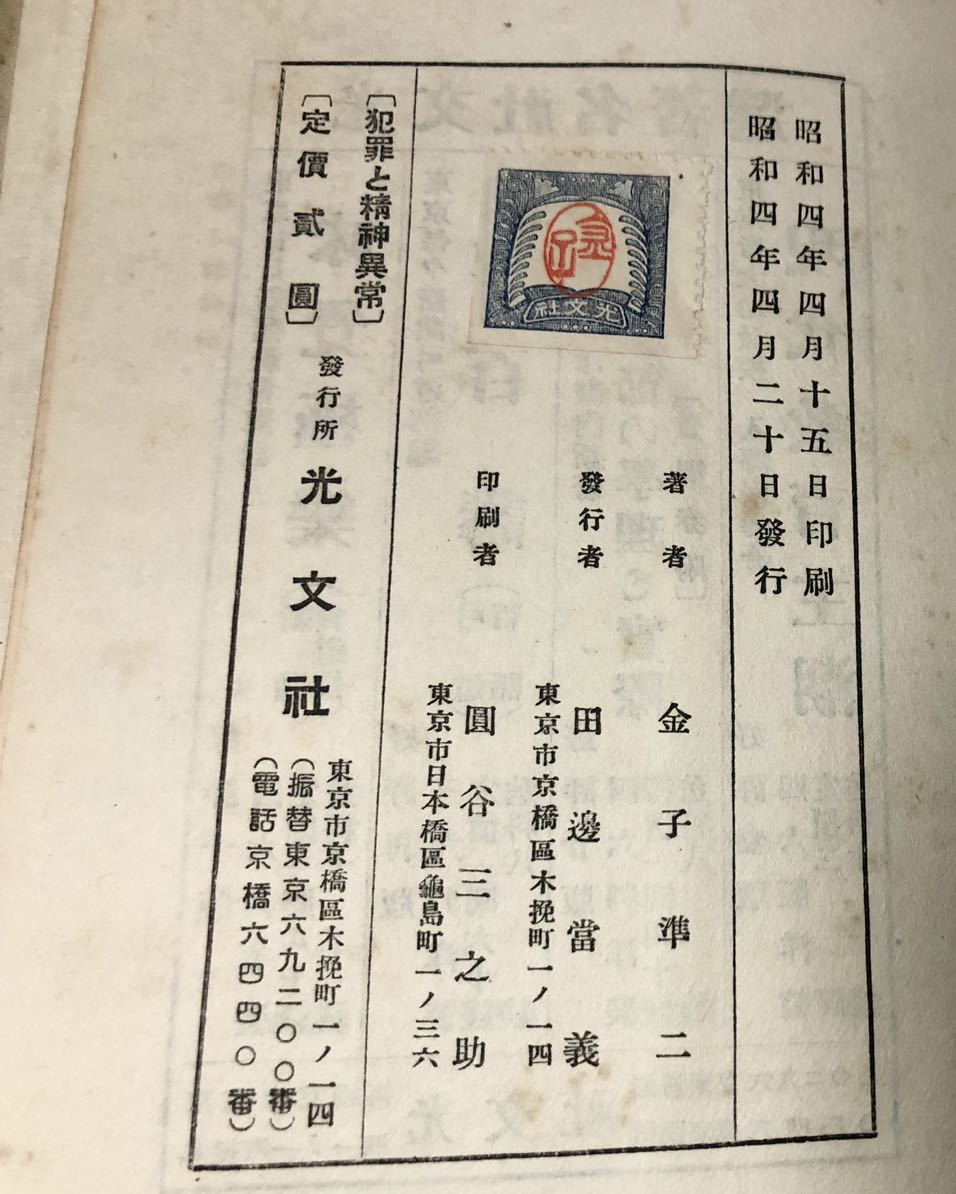 昭和四年四月十五日印刷
昭和四年四月二十日發行
著者 金子準二
發行者 田邊當義
東京市京橋區木挽町一ノ一四
印刷者 圓谷三之助
東京市日本橋區龜島町一ノ三六
光文社
〔犯罪と精神異常〕
〔定價貳圓〕
發行所 光文社
東京市京橋區木挽町一ノ一四
(振替東京六九二〇〇番)
(電話京橋六四四〇番)